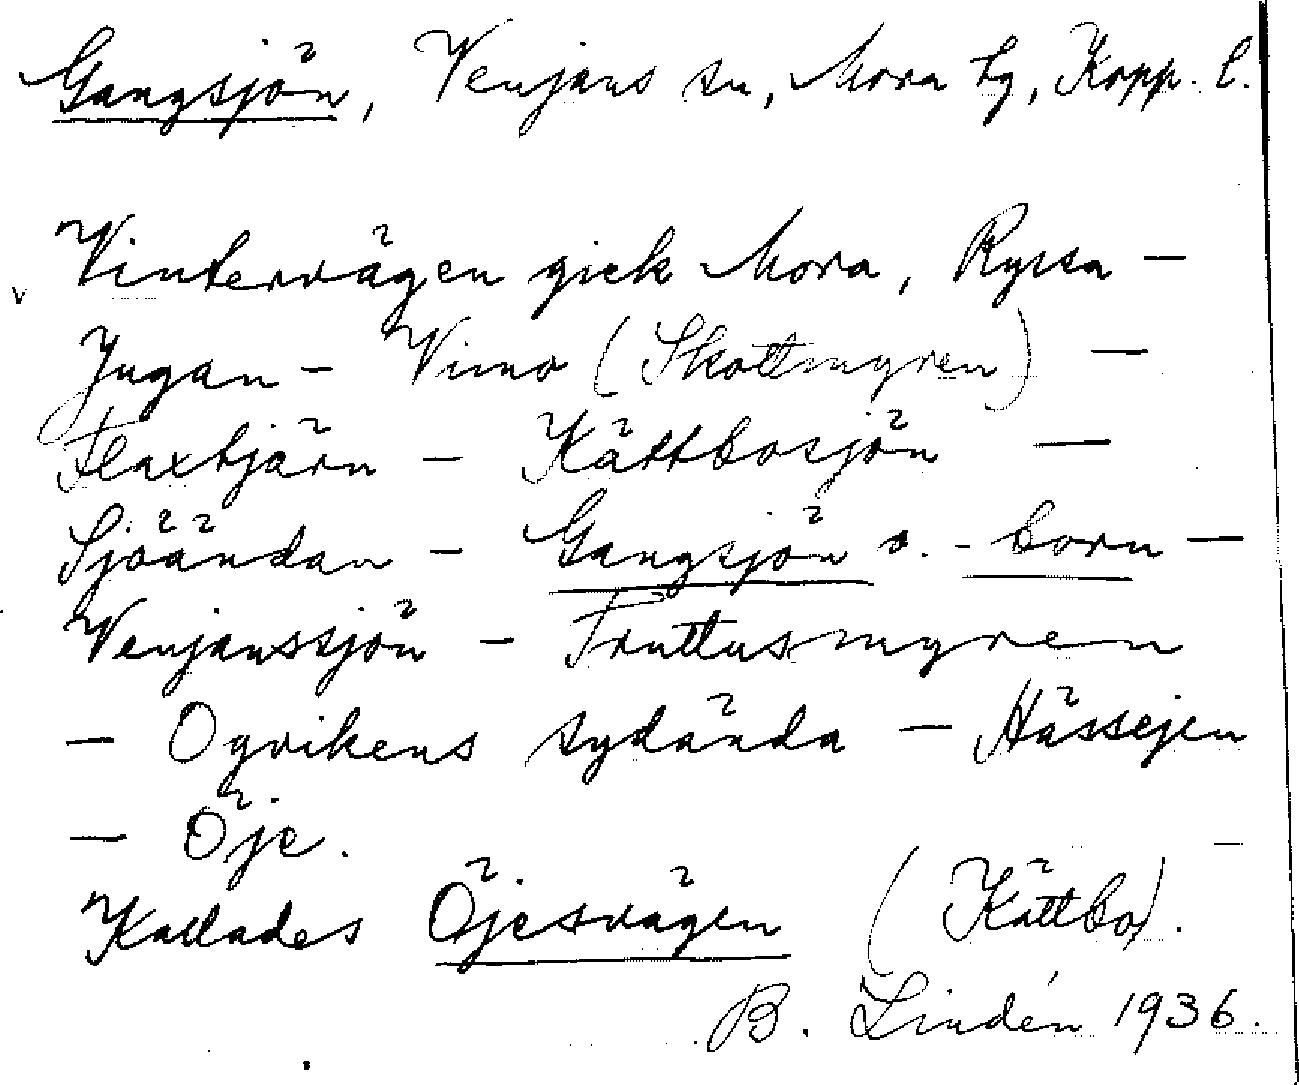 Gangsjön, Venjans sn, Mora tg, Kopp. l.
Vintervägen gick Mora, Ryssa –
Jugan – Vimo (Skottmyren) –
Flaxtjärn – Kättbosjön –
Sjöändan – Gangsjön o. - born –
Venjanssjön – Fruttusmyren
– Ogvikens sydända – Hässejen
– Öje.
Kallades Öjesvägen (Kättbo).
B. Lindén 1936.